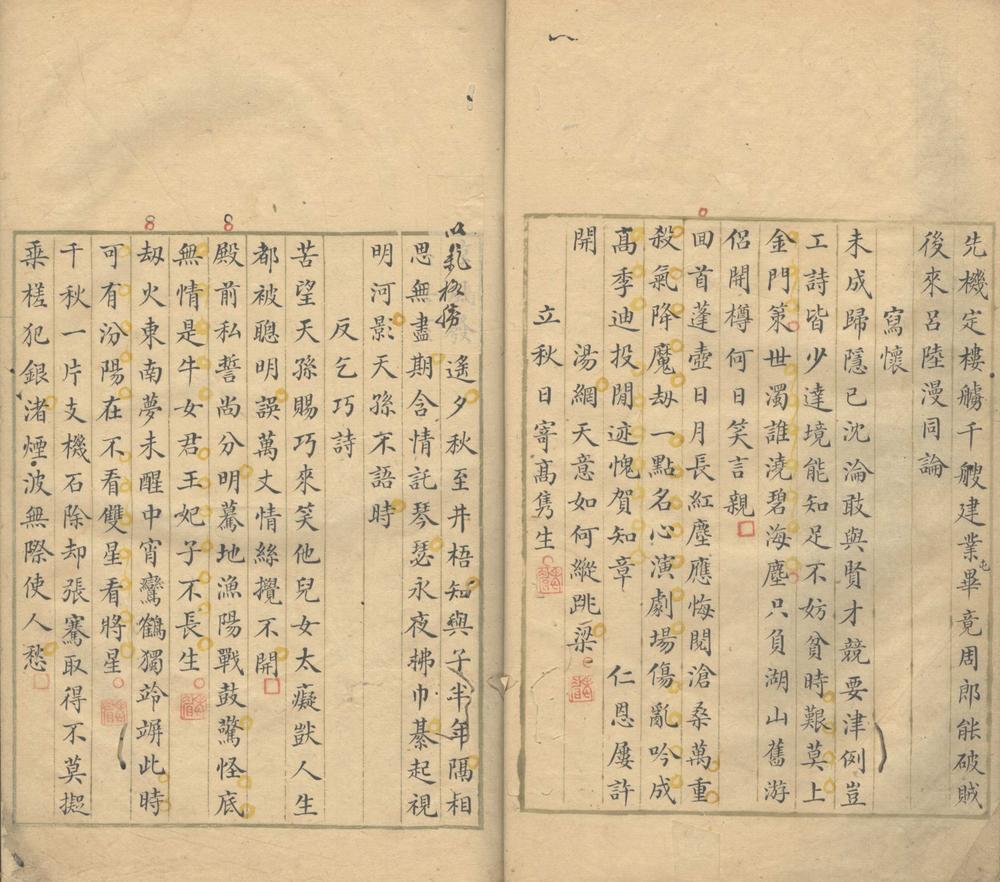 先機定樓艣千艘建業畢竟周郎能破賊
後來呂陸漫同論
寫懷
未成歸隱已沈淪敢與賢才競要津例豈
工詩皆少達境能知足不妨貧時艱莫上
金門策世濁誰澆碧海塵只負湖山舊游
侶開樽何日笑言親
回首蓬壺日月長紅塵應悔閱滄桑萬重
殺氣降魔劫一點名心演劇場傷亂吟成
高季迪投閒迹愧賀知章 仁恩屢許
開 湯網天意如何縱跳梁
立秋日寄高雋生
遙夕秋至井梧知與子半年隔相
思無盡期含情託琴瑟永夜拂巾綦起視
明河影天孫不語時
反乞巧詩
苦望天孫賜巧來笑他兒女太癡獃人生
都被聰明誤萬丈情絲攪不開
殿前私誓尚分明驀地漁陽戰鼓驚怪底
無情是牛女君王妃子不長生
劫火東南夢未醒中宵鸞鶴獨竛竮此時
可有汾陽在不看雙星看將星
千秋一片支機石除却張騫取得不莫擬
乘槎犯銀渚煙波無際使人愁